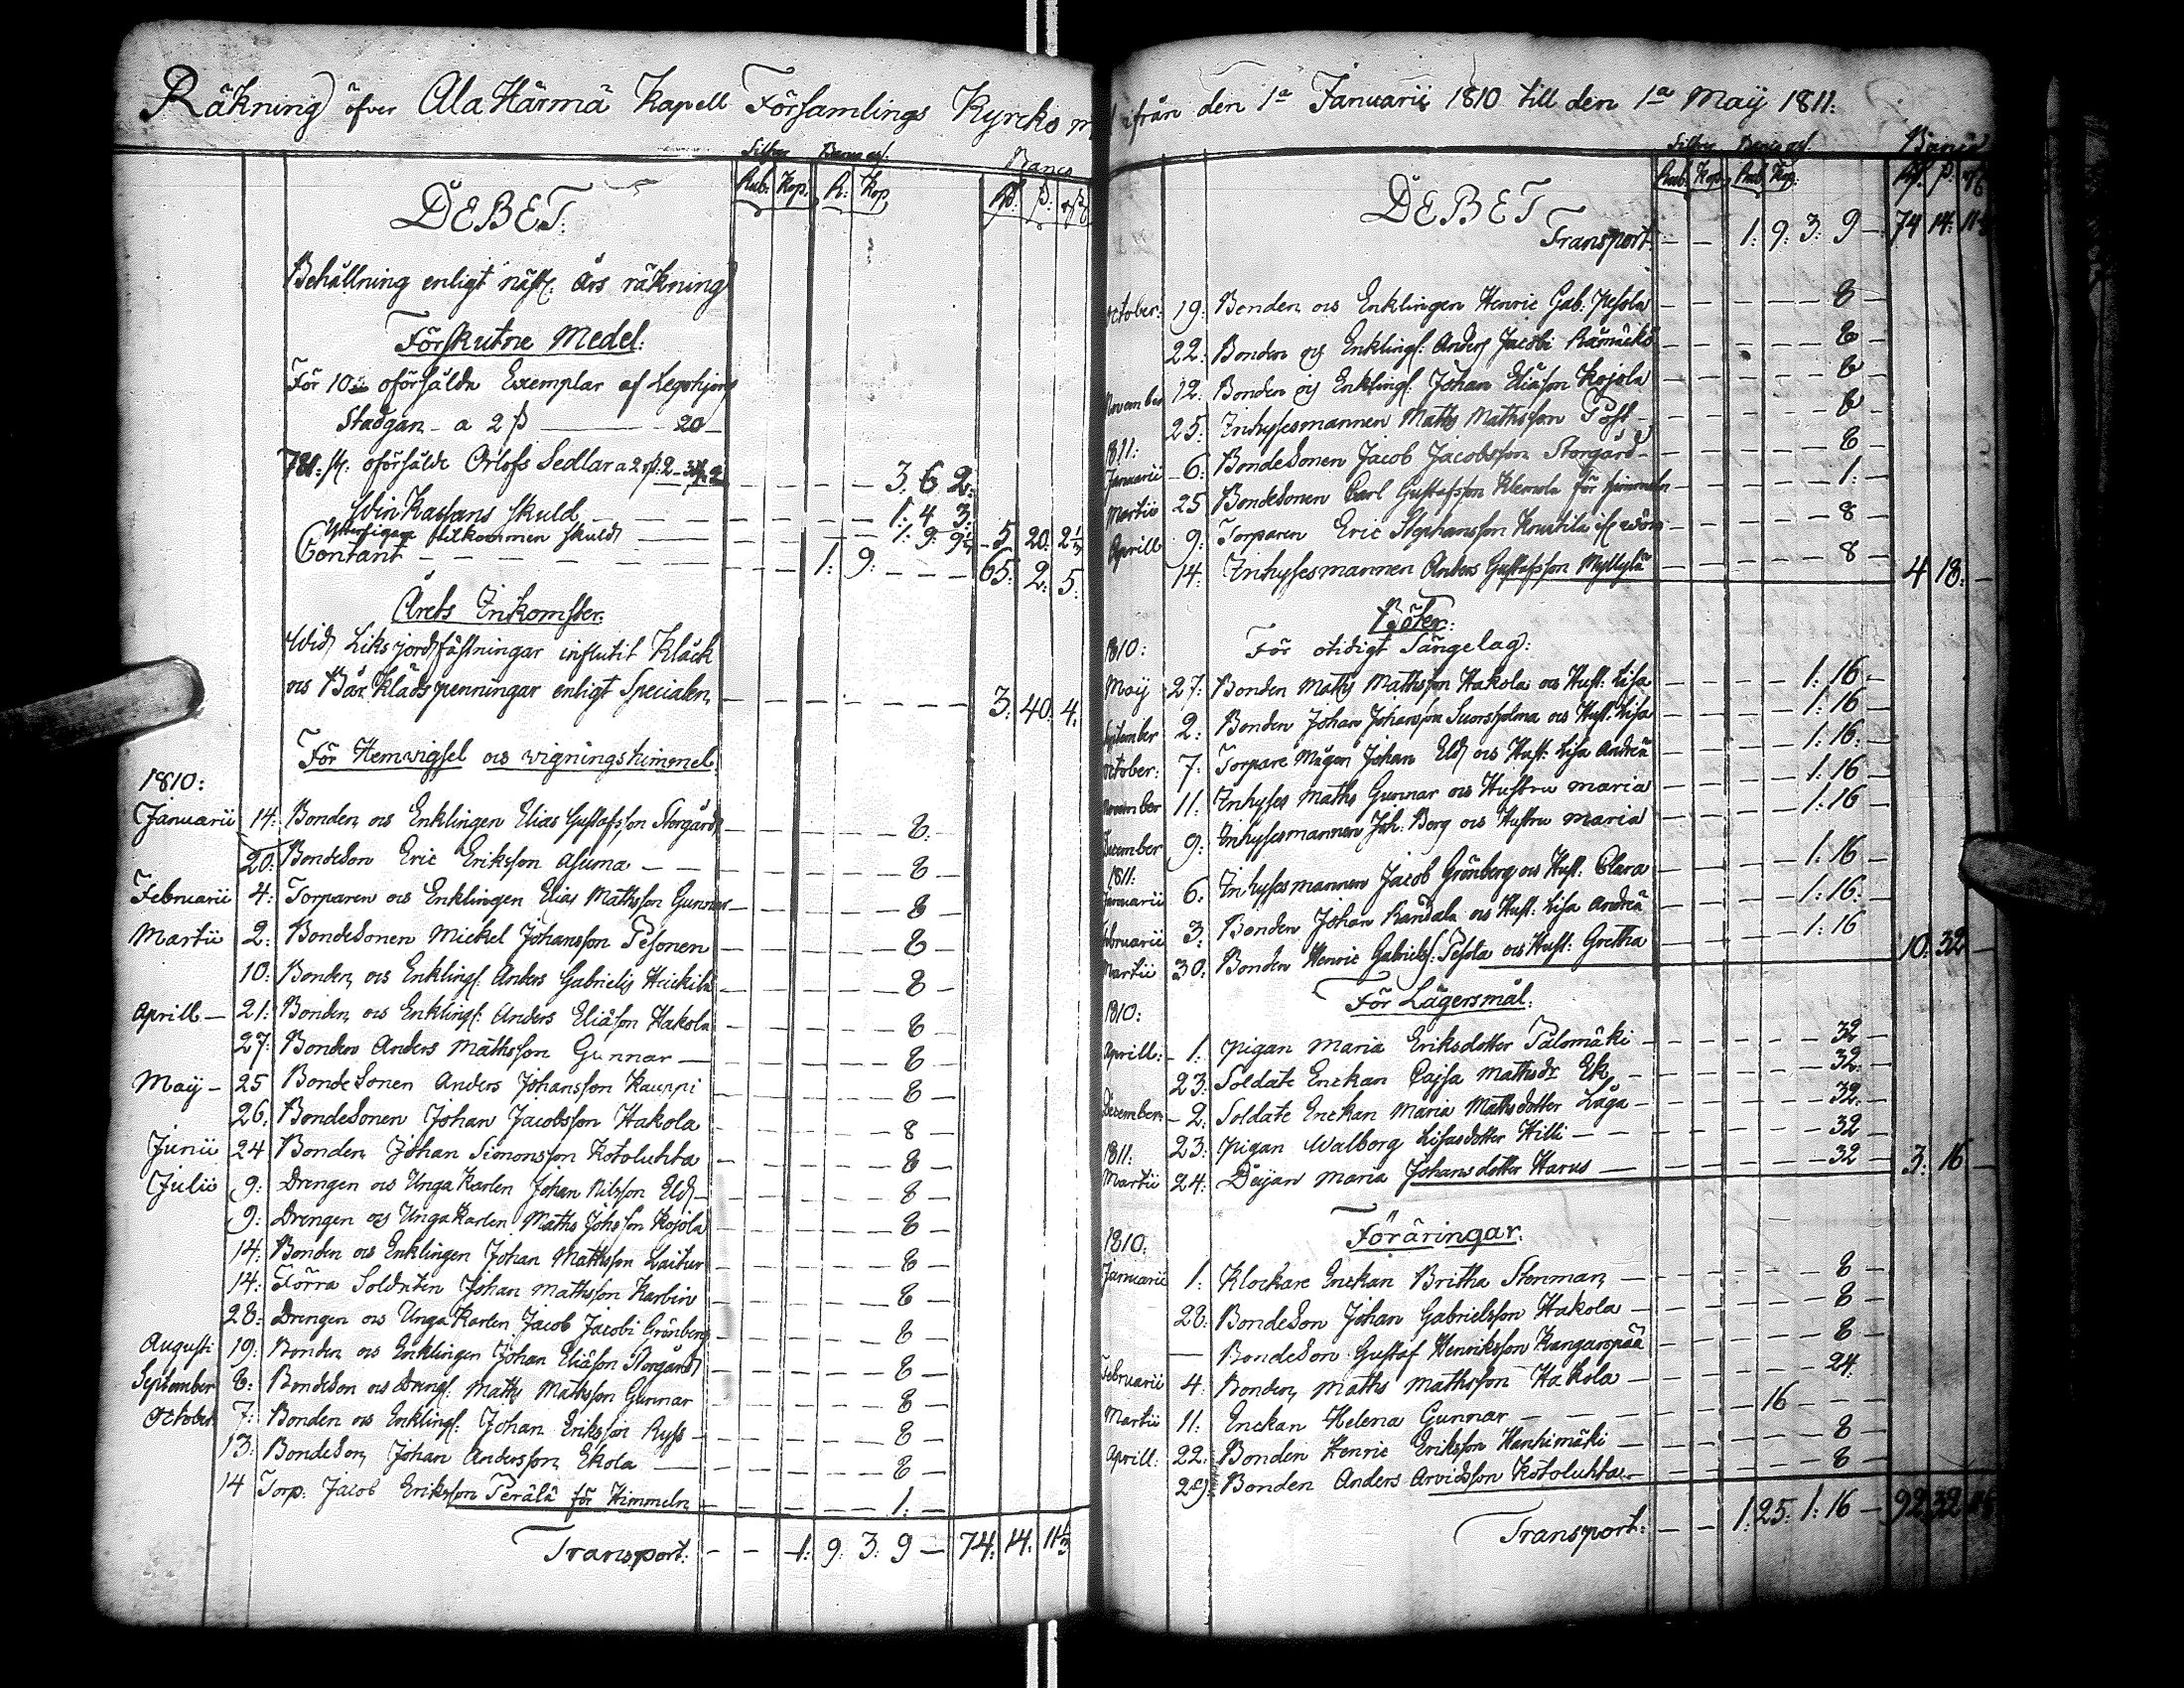 Räkning öfver Ala Härmä Kapell Församlings Kyrcko
Silfver Banco
Rub: Kop: R: Kop Rd: ß:
DEBET:
Behållning enligt näst. års räkning
Förskutne Medel:
För 10 oförsålda Exemplar af Legohjons
Stadgan - a 2 ß — 20 —
781: st: oförsålde Orlofs Sedlar a 2 3. 6 2:
Win Kassans skuld — 1: 4 3:
tilkommen skuld — 1: 9: 5 20: 2
Contant — 1: 9: — 65: 2: 5:
Årets Inkomster:
Wid Liks jordfästningar influtit Kläck
os Bår Kläds penningar enligt Specialen — 3: 40: 4.
För Hemvigsel os vigningshimmel:
1810:
Januarii 14: Bonden os Enklingen Elias Gustafsson Storgård — 8 —
20: BondeSon Eric Eriksson Asuma — 8 —
Februarii 4: Torparen os Enklingen Elias Mathsson Gunnar — 8 —
Martii 2: BondeSonen Mickel Johansson Pesonen — 8 —
10: Bonden os Enklingf: Anders Gabrielis — 8 —
Aprill — 21: Bonden os Enklingf: Anders Eliäson Hakola — 8 —
27: Bonden Anders Mathsson Gunnar — 8 —
Maÿ — 25 BondeSonen Anders Johansson Kauppi — 8 —
26: BondeSonen Johan Jacobsson Hakola — 8 —
Junii 24 Bonden Johan Simonsson Kotoluhta — 8 —
Julii 9: Drengen os Unga Karlen Johan Nilsson Eld — 8 —
9: Drengen os Unga Karlen Maths Johsson Kojola — 8 —
14: Bonden os Enklingen Johan Mathsson — 8 —
14: Förra Soldaten Johan Mathsson Karbin — 8 —
28: Drengen os Unga Karlen Jacob Jacobi Grönberg — 8 —
Augusti 19: Bonden os Enklingen Johan Eliäson Storgård — 8 —
September 8: BondeSon os Drengf: Maths Mathsson Gunnar — 8 —
October 7: Bonden os Enklingf: Johan Eriksson Ryss — 8 —
13: BondeSon Johan Andersson Ekola — 8 —
14 Torp: Jacob Eriksson Perälä för Himmeln — 1: —
Transport: — 1: 9: 3: 9 — 74: 14: 11
ifrån den 1a Januarii 1810 till den 1a Maÿ 1811:
Silfver Banco
Rub: Kop: Rub: Kop: Rd: ß:
DEBET
Transport: — 1: 9: 3: 9 — 74 14: 11
October: 19: Bonden os Enklingen Henric Gab: Pesola — 8 —
22: Bonden os Enklingf: Anders Jacobi — 8 —
November 12: Bonden os Enklingf: Johan Eliäson Kojola — 8 —
25: Inhysesmannen Maths Mathsson — 8 —
1811:
Januarii — 6: BondeSonen Jacob Jacobsson Storgård — 8 —
Martii 25 BondeSonen Carl Gustafsson Klemola för himmeln — 1: —
Aprill 9: Torparen Eric Stephansson — 8 —
14: Inhysesmannen Anders Gustafsson Myllylä — 8 — 4 18: —
Böter:
1810: För otidigt Sängelag:
Maÿ 27: Bonden Maths Mathsson Hakola os Hust: Lisa — 1: 16 —
September 2: Bonden Johan Johansson Suorsholma os Hust: Lisa — 1: 16 —
October: 7: Torpare Mågen Johan Eld os Hust: Lisa Andriä — 1: 16: —
November 11: Inhyses Maths Gunnar os Hustru Maria — 1: 16 —
December 9: Inhysesmannen Joh: Berg os Hustru Maria — 1: 16 —
1811:
Januarii 6: Inhysesmannen Jacob Grönberg os Hust: Clara — 1: 16 —
Februarii 3: Bonden Johan Kandala os Hust: Lisa Andriä — 1: 16: —
Martii 30: Bonden Henric Gabrielsf: Pesola os Hust: Gretha — 1: 16 10: 32 —
För Lägersmål:
1810:
Aprill: — 1: Pigan Maria Eriksdotter Palomäki — 32 —
23: Soldate Enckan Cajsa Mathsdr Ek — 32 —
December — 2: Soldate Enckan Maria Mathsdotter Låga — 32 —
23: Pigan Walborg Lisasdotter Hilli — 32 —
1811:
Martii 24: Dejan Maria Johansdotter Harus — 32 — 3: 16 —
Föräringar:
1810:
Januarii 1: Klockare Enckan Britha Stenman — 8 —
28: BondeSon Johan Gabrielsson Hakola — 8 —
— BondeSon Gustaf Henriksson Kangaspää — 8 —
Februarii 4: Bonden Maths Mathsson Hakola — 24 —
Martii 11: Enckan Helena Gunnar — 16 —
Aprill: 22: Bonden Henric Eriksson Hanhimäki — 8 —
29: Bonden Anders Arvidsson Kotoluhta — 8 —
Transport: — 1: 25: 1: 16 — 92 32